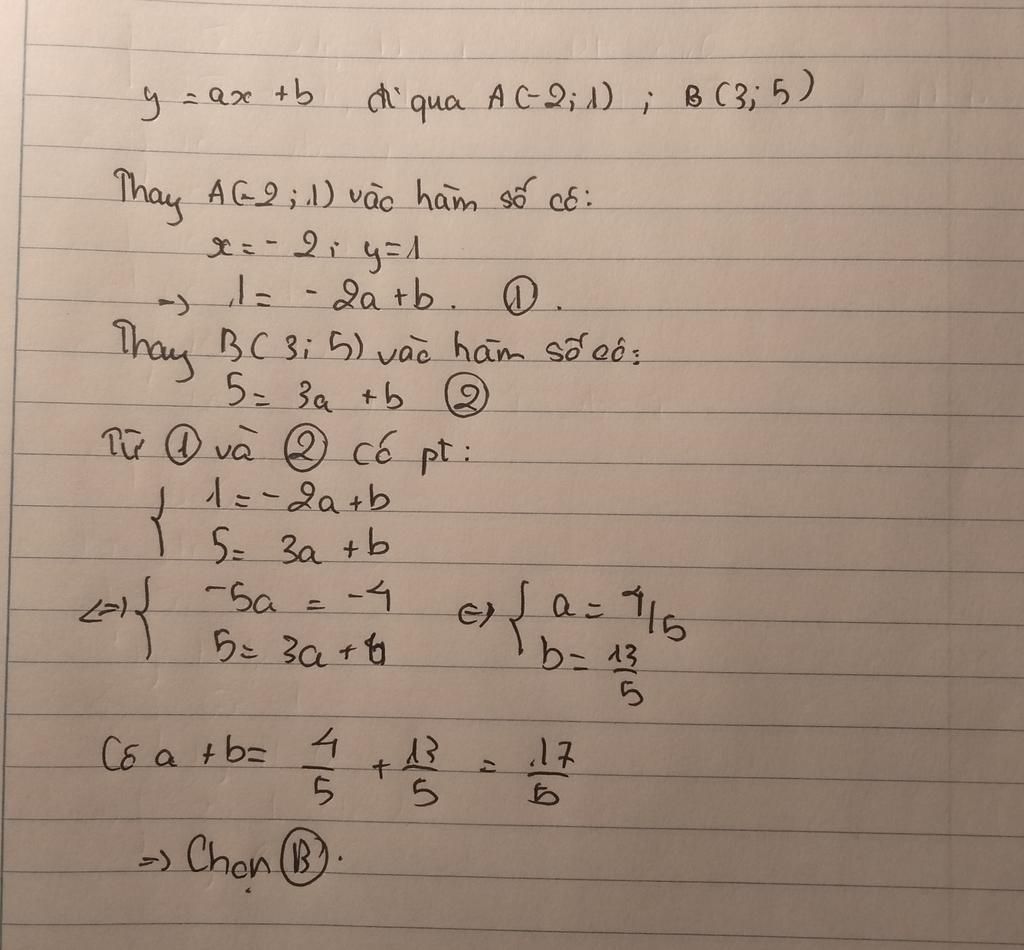 y = ax + b đi qua A(-2; 1) ; B(3; 5)
Thay A(-2; 1) vào hàm số có:
x = -2; y = 1
→ 1 = -2a + b. ①.
Thay B(3; 5) vào hàm số có:
5 = 3a + b ②
Từ ① và ② có pt:
{ 1 = -2a + b
5 = 3a + b
<=> { -5a = -4 <=> { a = 4/5
5 = 3a + b b = 13/5
Có a + b = 4/5 + 13/5 = 17/5
=> Chọn Ⓑ.